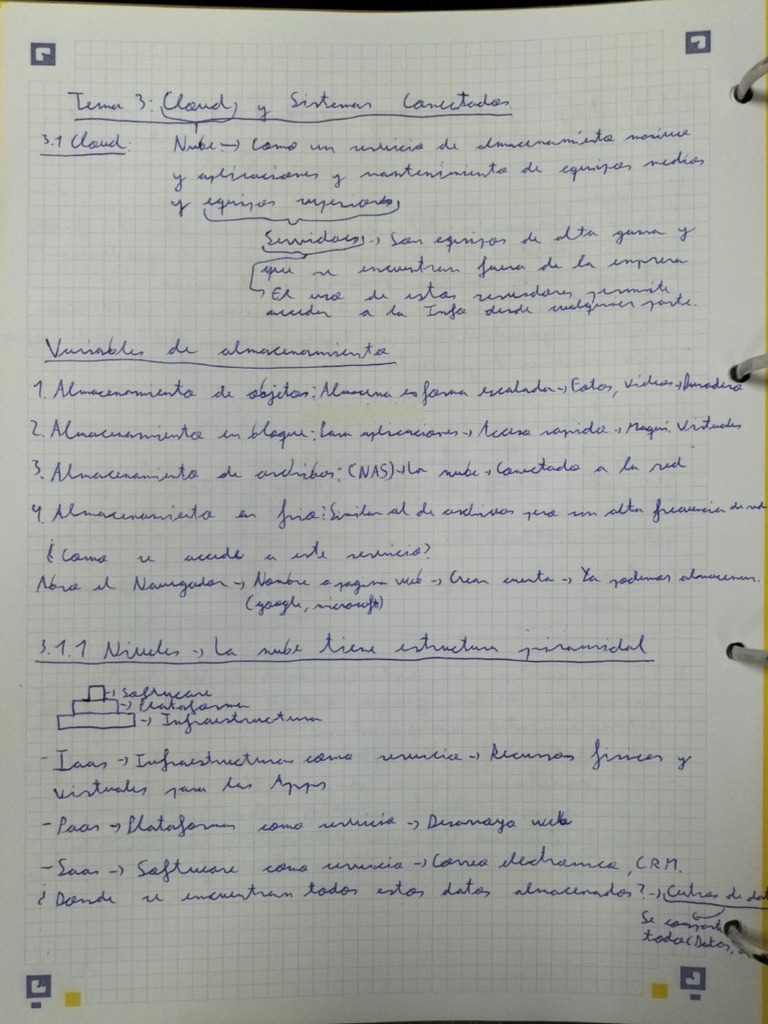 Tema 3: Cloud y Sistemas Conectados
3.1 Cloud: Nube → Como un servicio de almacenamiento masivo
y aplicaciones y mantenimiento de equipos medios
y equipos superiores
Servidores → Son equipos de alta gama y
que se encuentran fuera de la empresa
El uso de estos servidores permite
acceder a la Info desde cualquier parte.
Variables de almacenamiento
1. Almacenamiento de objetos: Almacena en forma escalada → Fotos, Videos → Duradero
2. Almacenamiento en bloque: Para aplicaciones → Acceso rapido → Maqui. Virtuales
3. Almacenamiento de archibos: (NAS) → La nube → Conectado a la red
4. Almacenamiento en frio: Similar al de archivos pero un alta frecuencia de
¿Como se accede a este servicio?
Abro el Navegador → Nombre o pagina web → Crear cuenta → Ya podemos almacenar.
(google, microsoft)
3.1.1 Niveles → La nube tiene estructura piramidal
→ Software
→ Plataforma
→ Infraestructura
- Iaas → Infraestructura como servicio → Recursos fisicos y
virtuales para las Apps
- Paas → Plataforma como servicio → Desarroyo web
- Saas → Software como servicio → Correo electronico, CRM.
¿Donde se encuentran todos estos datos almacenados? → de
Se
todo (Datos,